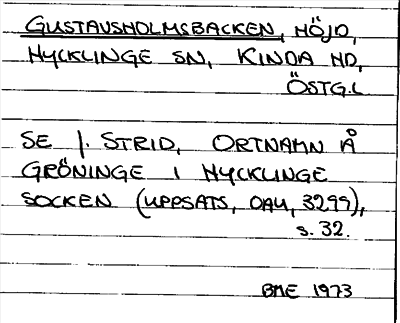 GUSTAVSHOLMSBACKEN, HÖJD,
HYCKLINGE SN, KINDA HD,
ÖSTG.L
SE J. STRID, ORTNAMN Å
GRÖNINGE I HYCKLINGE
SOCKEN (UPPSATS, OAU, 3299),
s. 32.
BME 1973